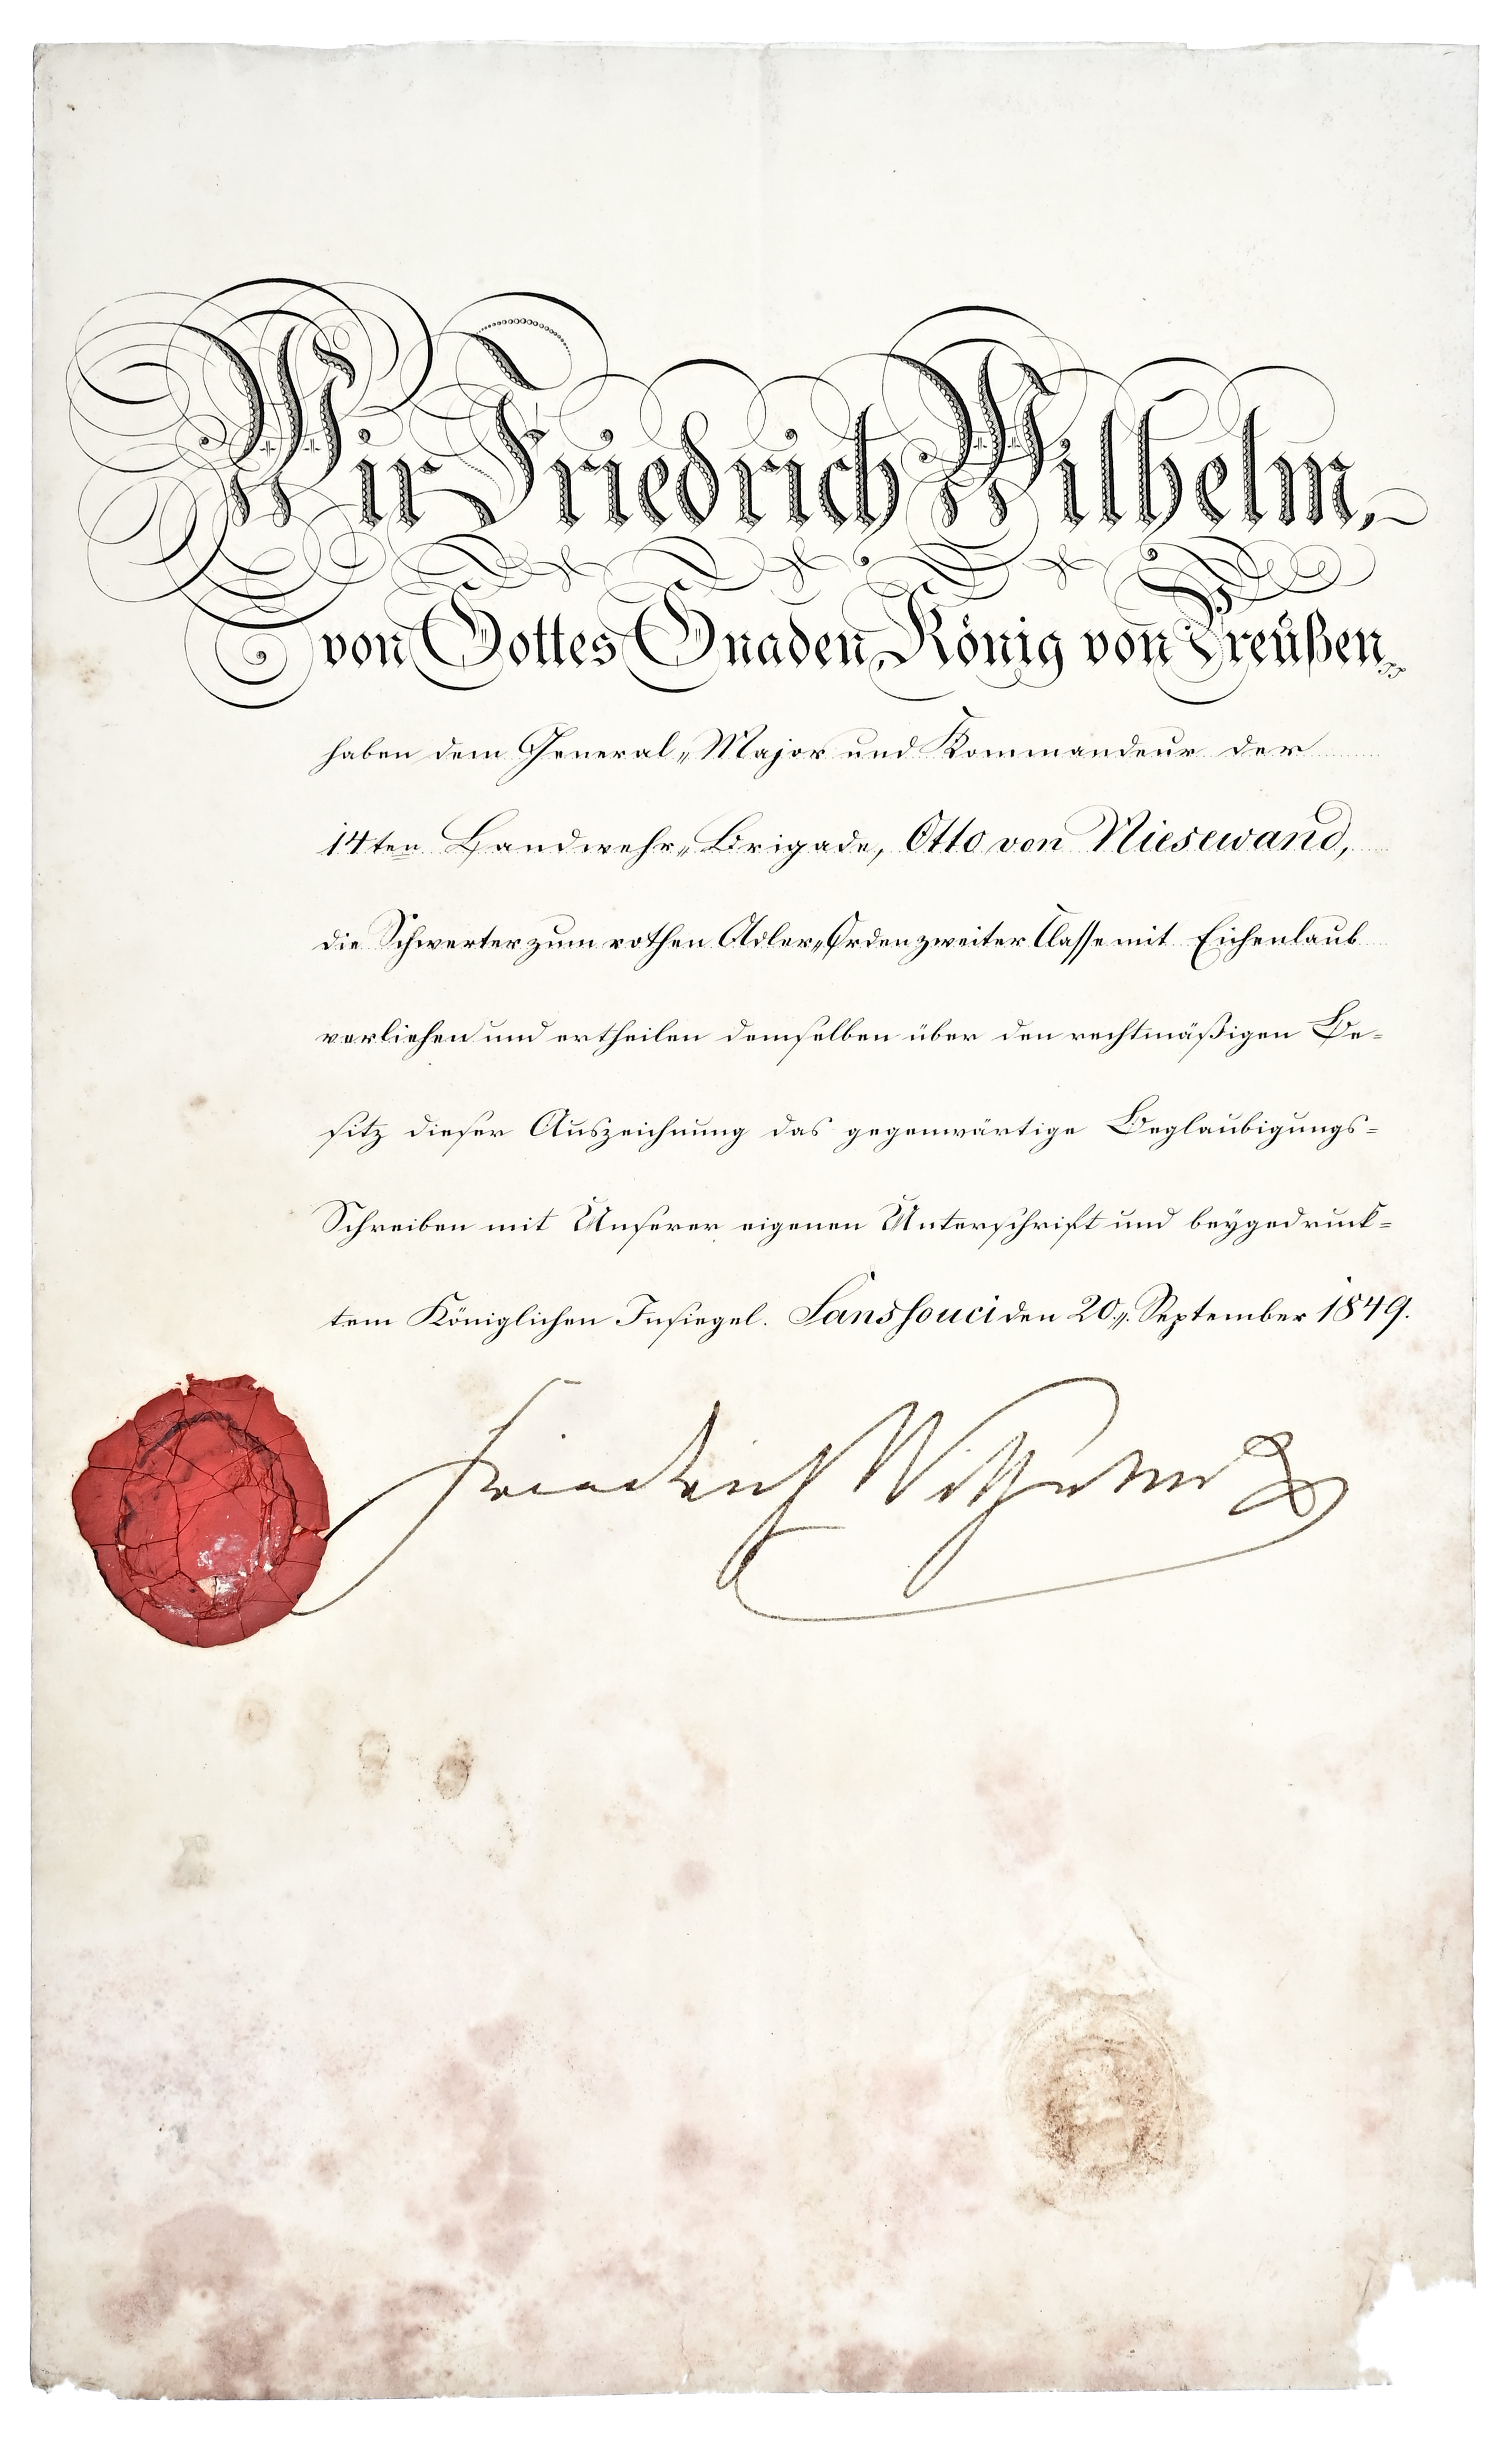 Wir Friedrich Wilhelm,
von Gottes Gnaden, König von Preußen,
haben dem General-Major und Kommandeur der
14ten Landwehr-Brigade, Otto von Niesewand,
die Schwerter zum rothen Adler-Orden zweiter Classe mit Eichenlaub
verliehen und ertheilen demselben über den rechtmäßigen Be-
sitz dieser Auszeichnung das gegenwärtige Beglaubigungs-
Schreiben mit Unserer eigenen Unterschrift und beygedruck-
tem Königlichen Insiegel. Sanssouci den 20. September 1849.
Friedrich Wilhelm